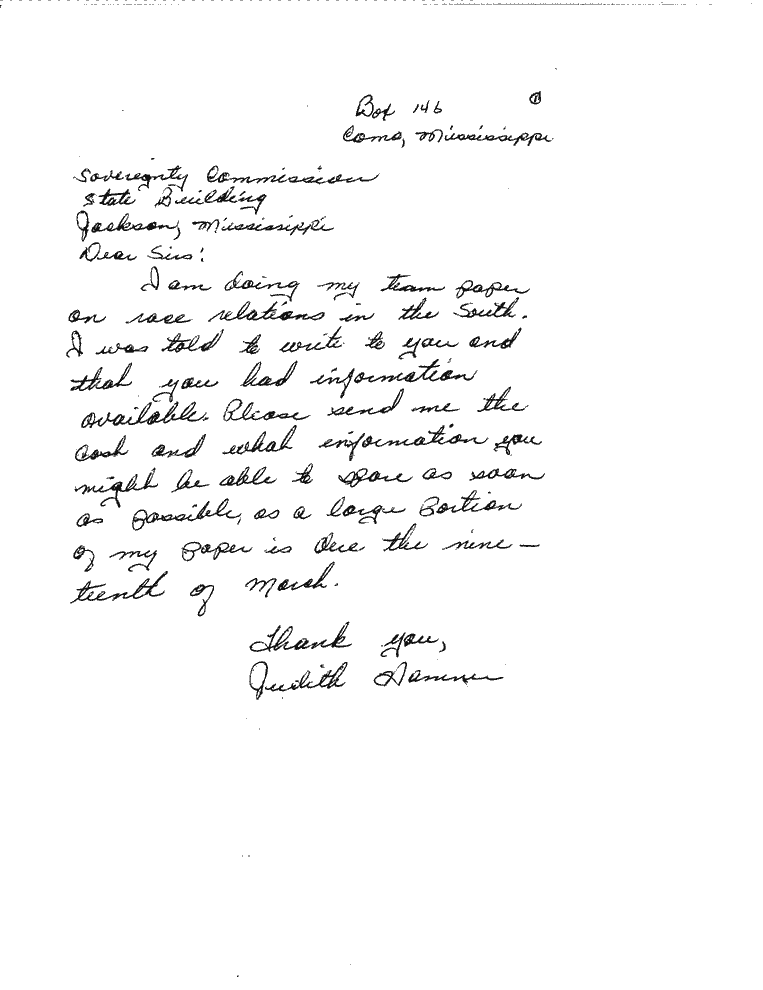 ①
Box 146
Como, Mississippi
Sovereignty Commission
State Building
Jackson, Mississippi
Dear Sirs:
I am doing my team paper
on race relations in the South.
I was told to write to you and
that you had information
available. Please send me the
cost and what information you
might be able to spare as soon
as possible, as a large portion
of my paper is due the nine-
teenth of March.
Thank you,
Judith